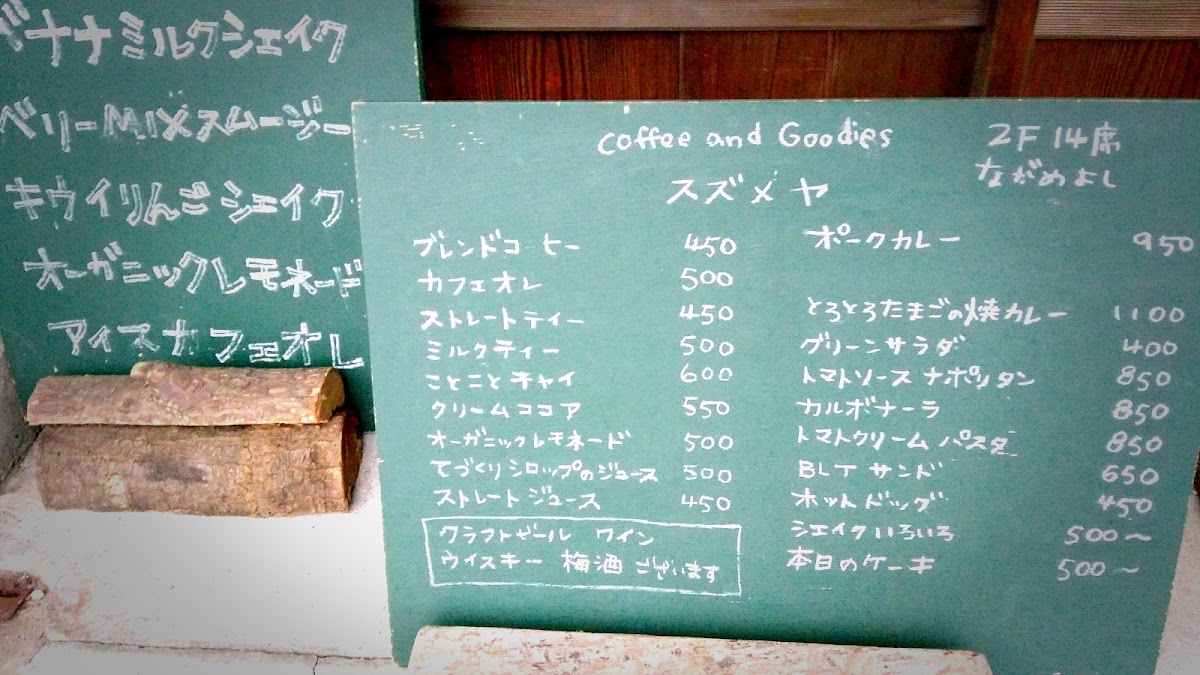 バナナミルクシェイク
ベリーMIXスムージー
キウイりんごシェイク
オーガニックレモネード
アイスカフェオレ
coffee and Goodies
2F 14席
ながめよし
スズメヤ
ブレンドコーヒー 450
カフェオレ 500
ストレートティー 450
ミルクティー 500
ことことチャイ 600
クリームココア 550
オーガニックレモネード 500
てづくりシロップのジュース 500
ストレートジュース 450
クラフトビール ワイン
ウイスキー 梅酒 ございます
ポークカレー 950
とろとろたまごの焼カレー 1100
グリーンサラダ 400
トマトソースナポリタン 850
カルボナーラ 850
トマトクリームパスタ 850
BLTサンド 650
ホットドッグ 450
シェイクいろいろ 500〜
本日のケーキ 500〜